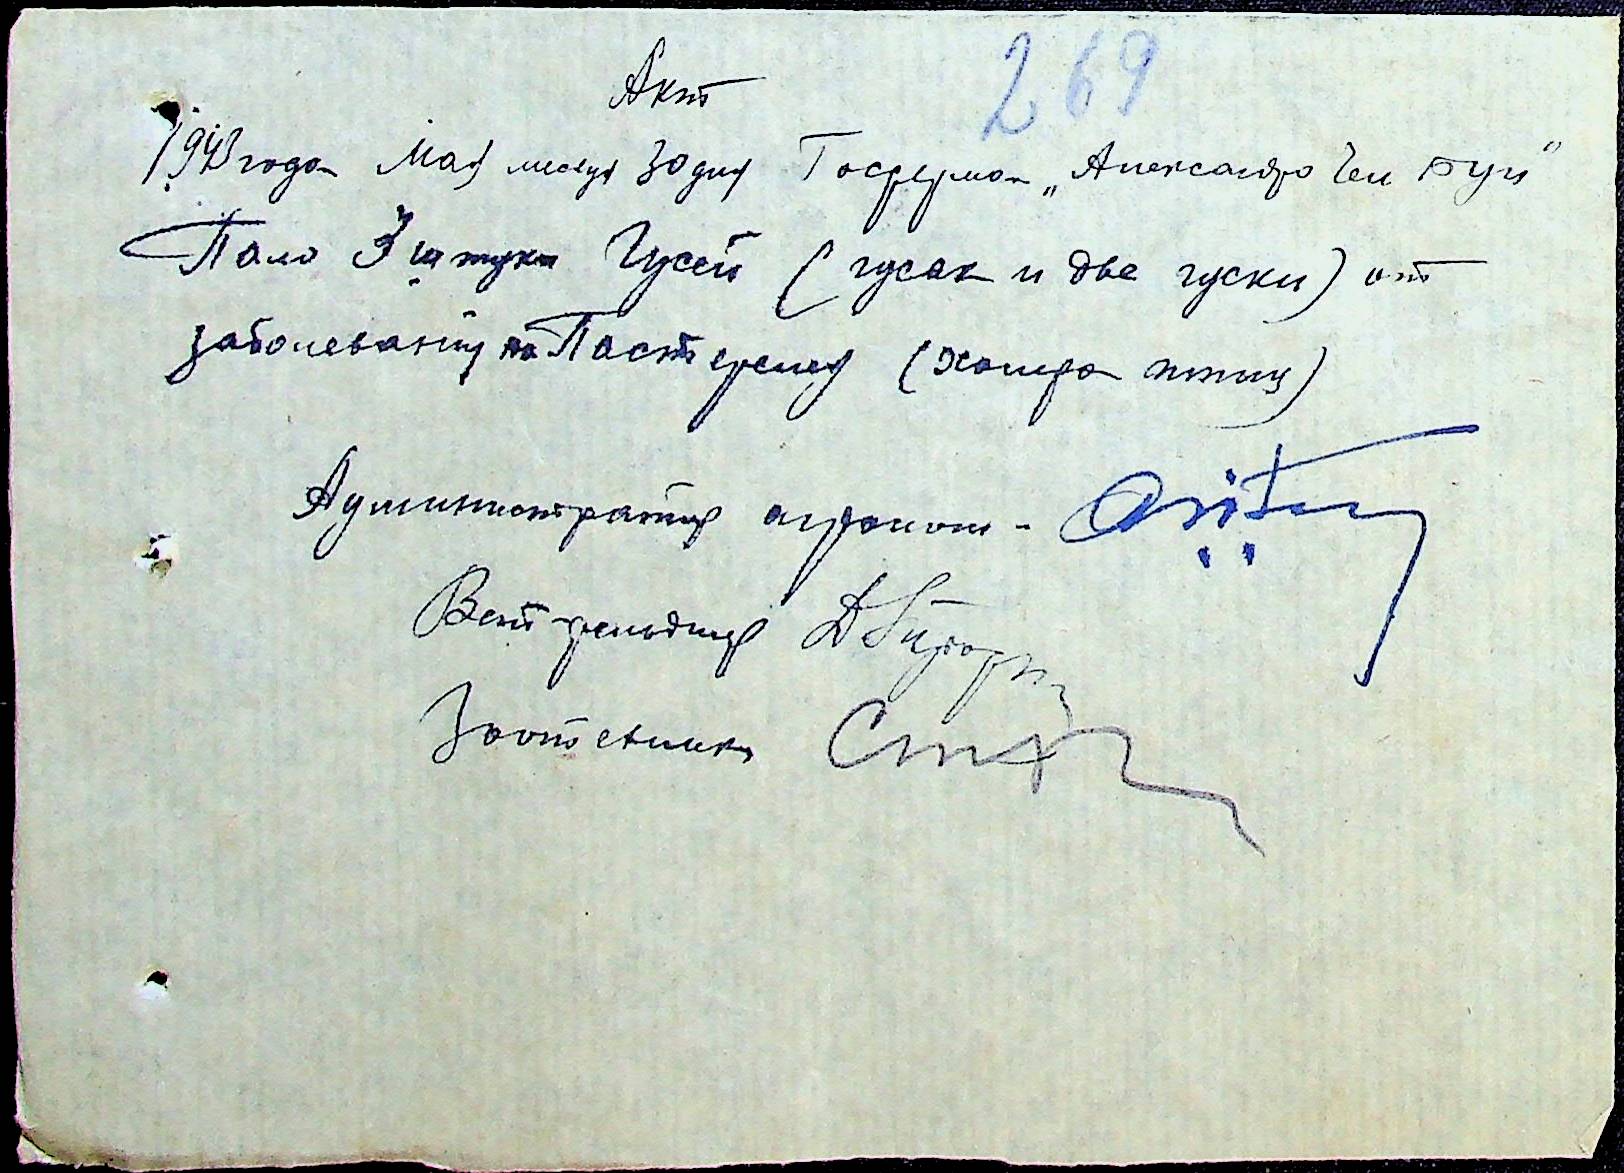 Акт
269
1943 года Мая месяца 30 дня Госферма „Александро Чел Бун"
Пало 3 штуки Гусей (гусак и две гуски) от
заболевания на Пастерелез (холера птиц)
Администратор агроном -
Вет-фельдшер
Зоотехник